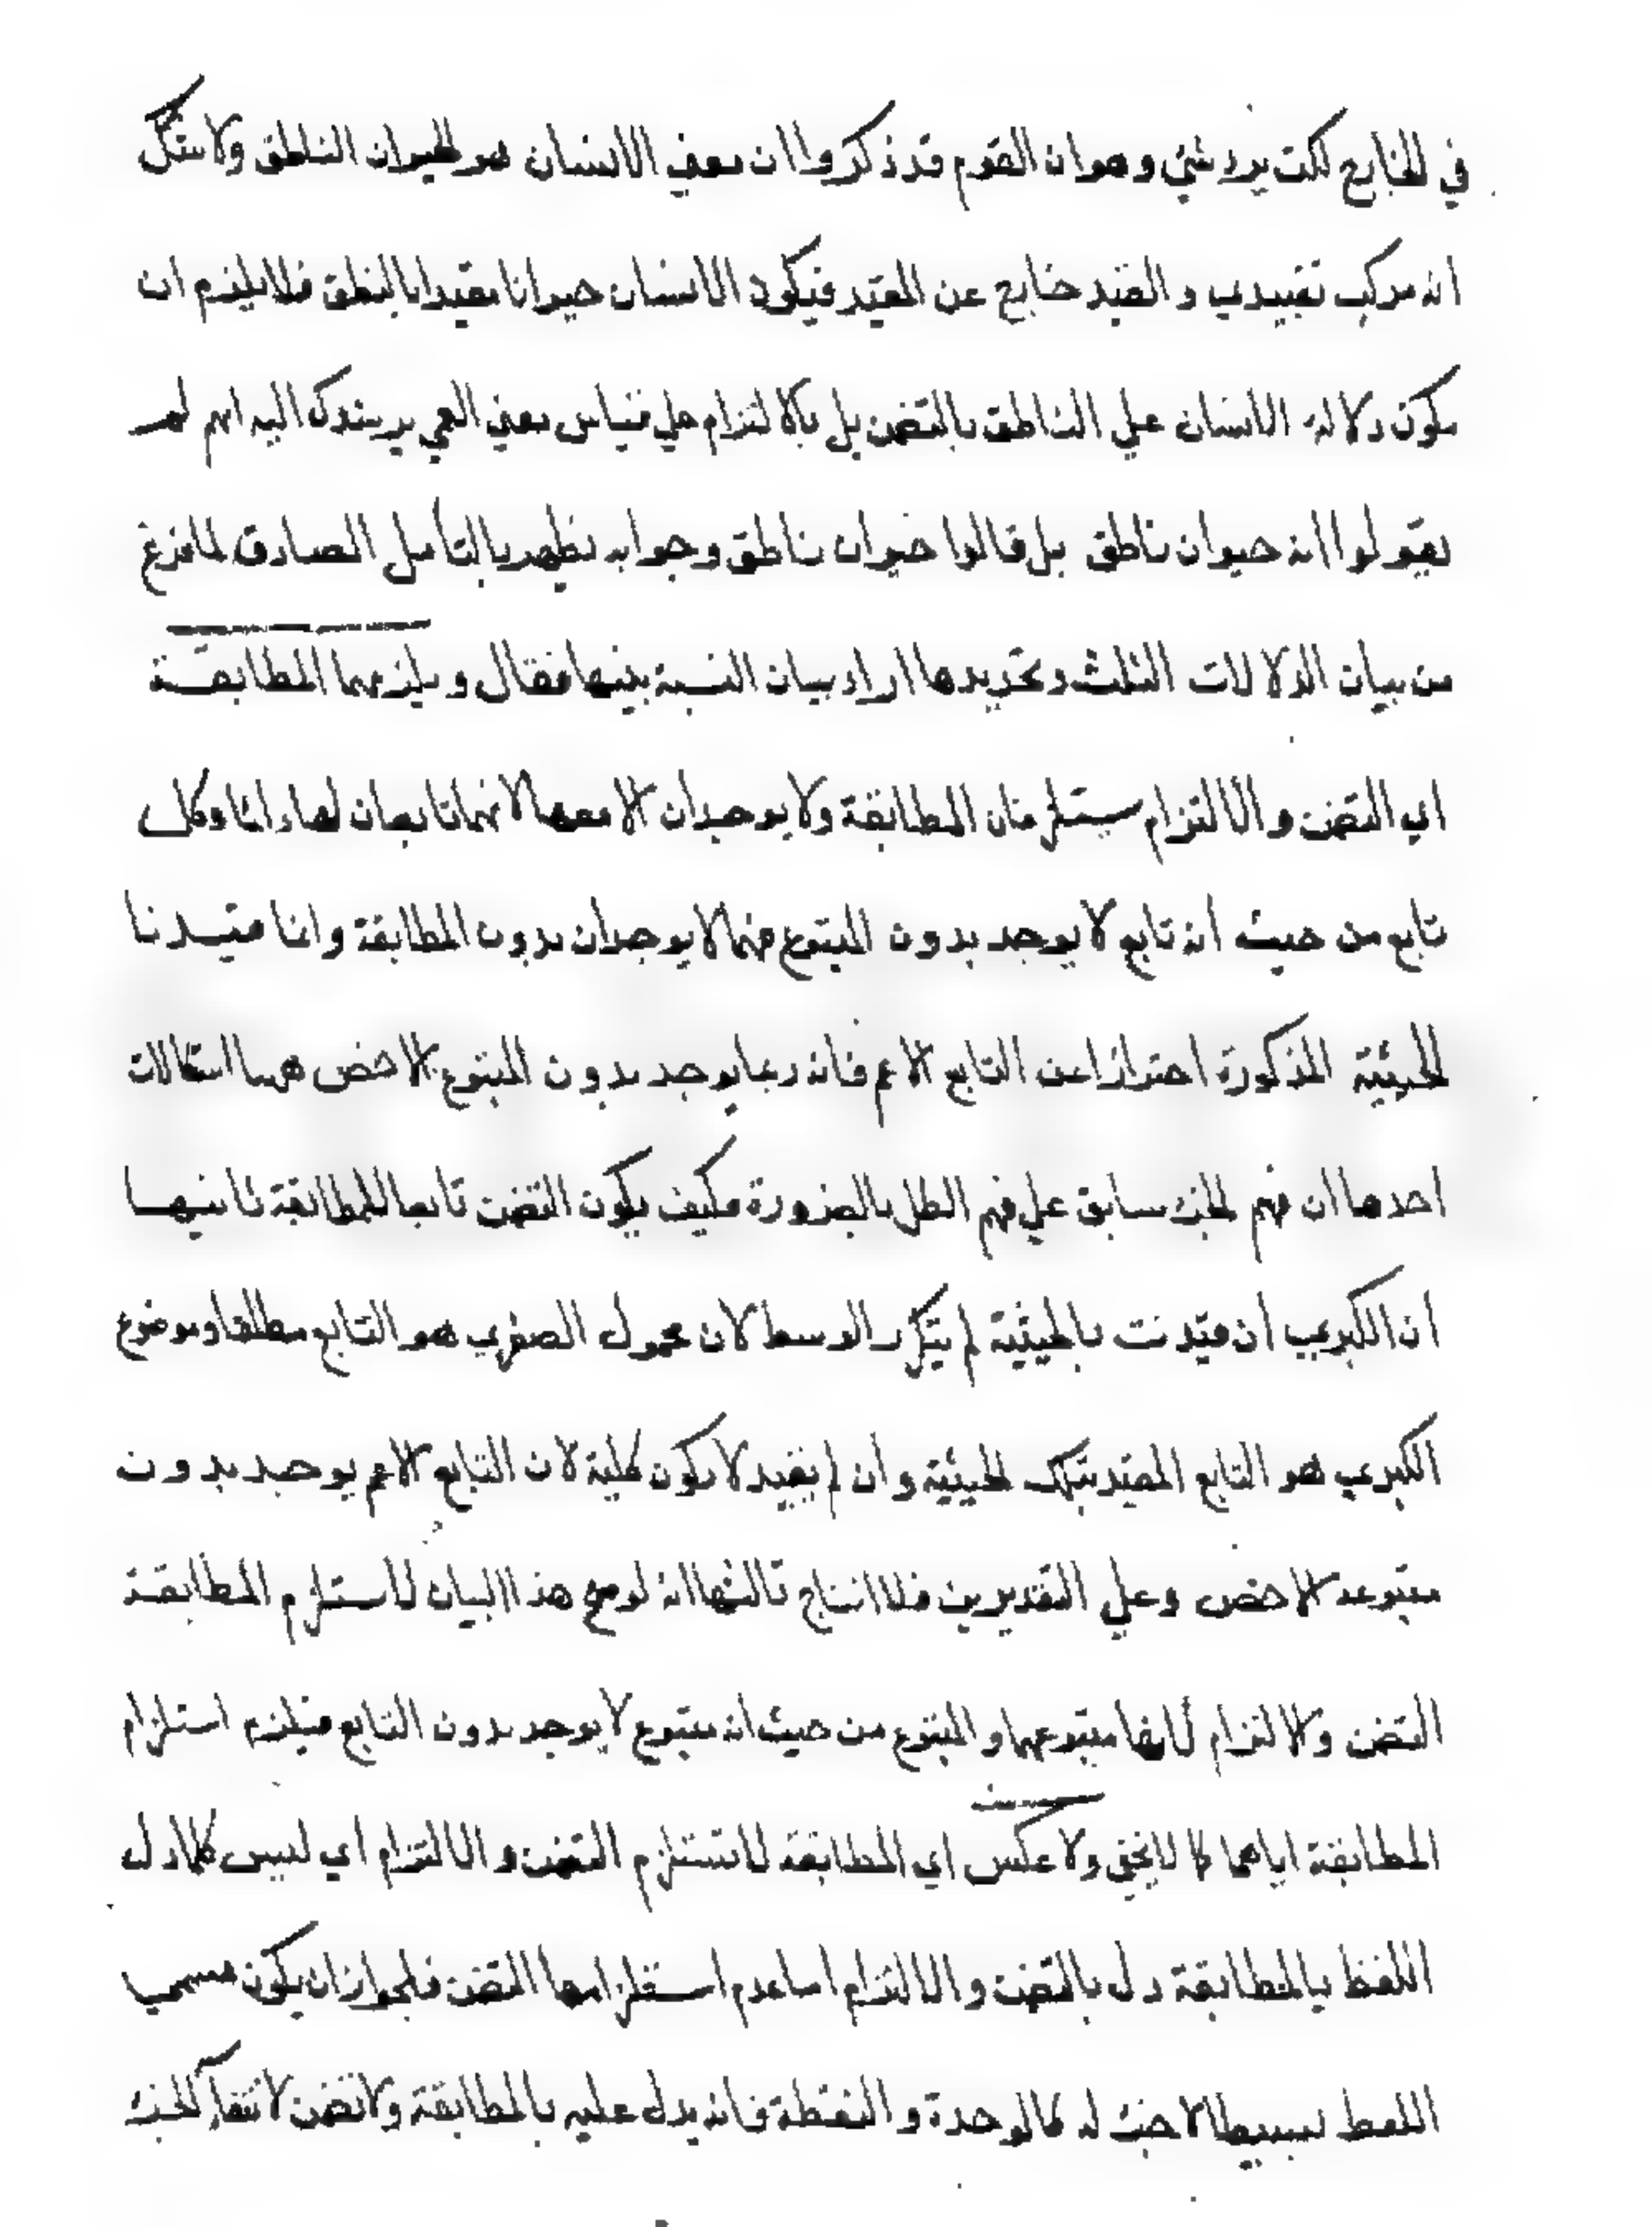 في الخارج لكن يرد شئ وهو ان القوم قد ذكروا ان معني الانسان هو الحيوان الناطق ولا شك
انه مركب تقييدي و القيد خارج عن المقيد فيكون الانسان حيوانا مقيدا بالنطق فلا يلزم ان
يكون دلالة الانسان علي الناطق بالتضمن بل بالالتزام علي قياس معني العمي يرشدك اليه انهم لم
يقولوا انه حيوان ناطق بل قالوا حيوان ناطق وجوابه يظهر بالتامل الصادق لما فرغ
من بيان الدلالات الثلث وتحريدها اراد بيان النسبة بينها فقال ويلزمهما المطابقة
اي التضمن والالتزام يستلزمان المطابقة ولا يوجدان الا معها لانهما تابعان لها دائما وكل
تابع من حيث أنه تابع لا يوجد بدون المتبوع فهما لا يوجدان بدون المطابقة وانما قيدنا
الحيثية المذكورة احترازا عن التابع الاعم فانه ربما يوجد بدون المتبوع الاخص ههنا اشكالات
احدها ان فهم الجزء سابق علي فهم الكل بالضرورة فكيف يكون التضمن تابعا للمطابقة ثانيها
ان الكبري أن قيدت بالحيثية لم يتكرر الوسط لان محمول الصغري هو التابع مطلقا وموضوع
الكبري هو التابع المقيد بتلك الحيثية وأن لم يقيد لا يكون كلية لان التابع الاعم يوجد بدون
متبوعه الاخص وعلي التقديرين فلا انتاج ثالثها انه لو صح هذا البيان لاستلزم المطابقة
التضمن والالتزام لأنها متبوعهما والمتبوع من حيث انه متبوع لا يوجد بدون التابع فيلزم استلزام
المطابقة اياهما كما لا يخفي ولا عكس اي المطابقة لا تستلزم التضمن والالتزام اي ليس كلما دل
اللفظ بالمطابقة دل بالتضمن والالتزام اما عدم استلزامها التضمن فلجواز ان يكون مسمي
اللفظ بسيطا لا جزء له كالوحدة والنقطة فانه يدل عليه بالمطابقة ولا تضمن لانتفاء الجزء